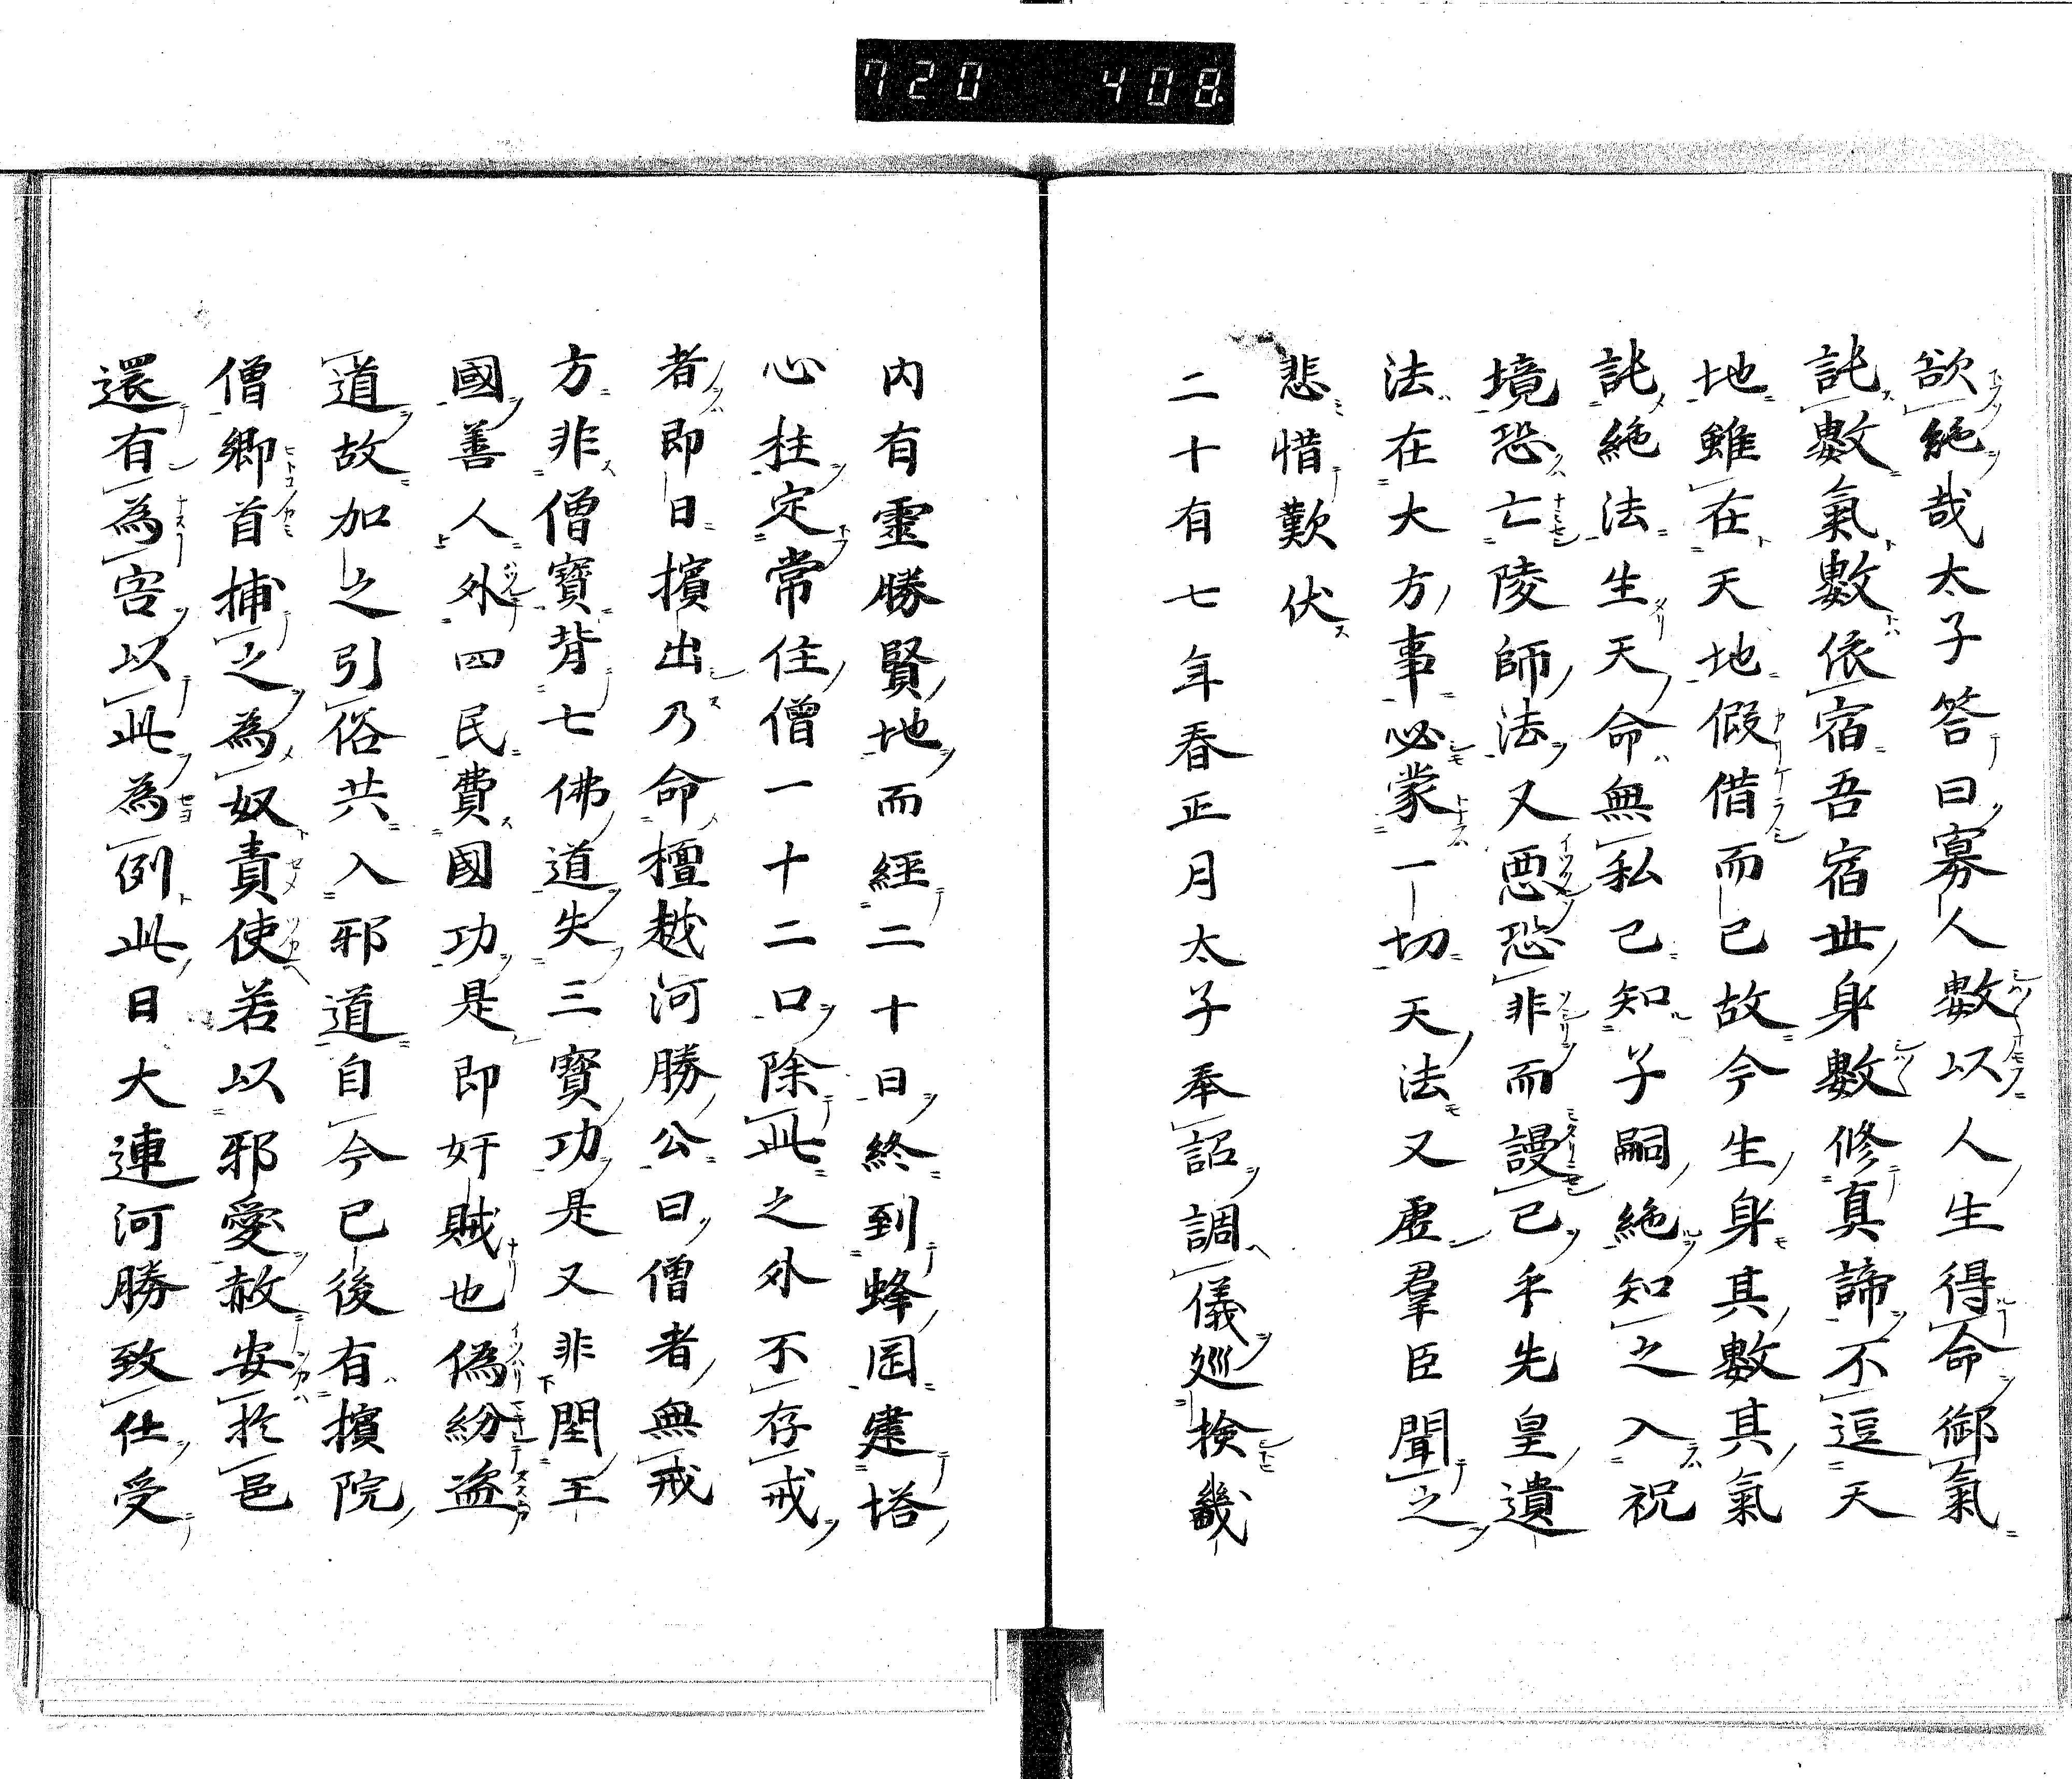 720 408
欲絶哉太子答曰寡人數以人生得命御氣
託數氣數依宿吾宿世身數修真諦不逗天
地雖在天地假借而已故今生身其數其氣
託絶法生天命無私己知子嗣絶知之入祝
境恐亡陵師法又惡恐非而謾己乎先皇遺
法在大方事必蒙一切天法又虚羣臣聞之
悲惜歎伏
二十有七年春正月太子奉詔調儀巡検畿
内有靈勝賢地而經二十日終到蜂岡建塔
心柱定常住僧一十二口除此之外不存戒
者即日擯出乃命檀越河勝公曰僧者無戒
方非僧寶背七佛道失三寶功是又非閏王
國善人外四民費國功是即奸賊也偽紛盗
道故加之引俗共入邪道自今已後有擯院
僧郷首捕之為奴責使若以邪愛赦安於邑
還有為害以此為例此日大連河勝致仕受